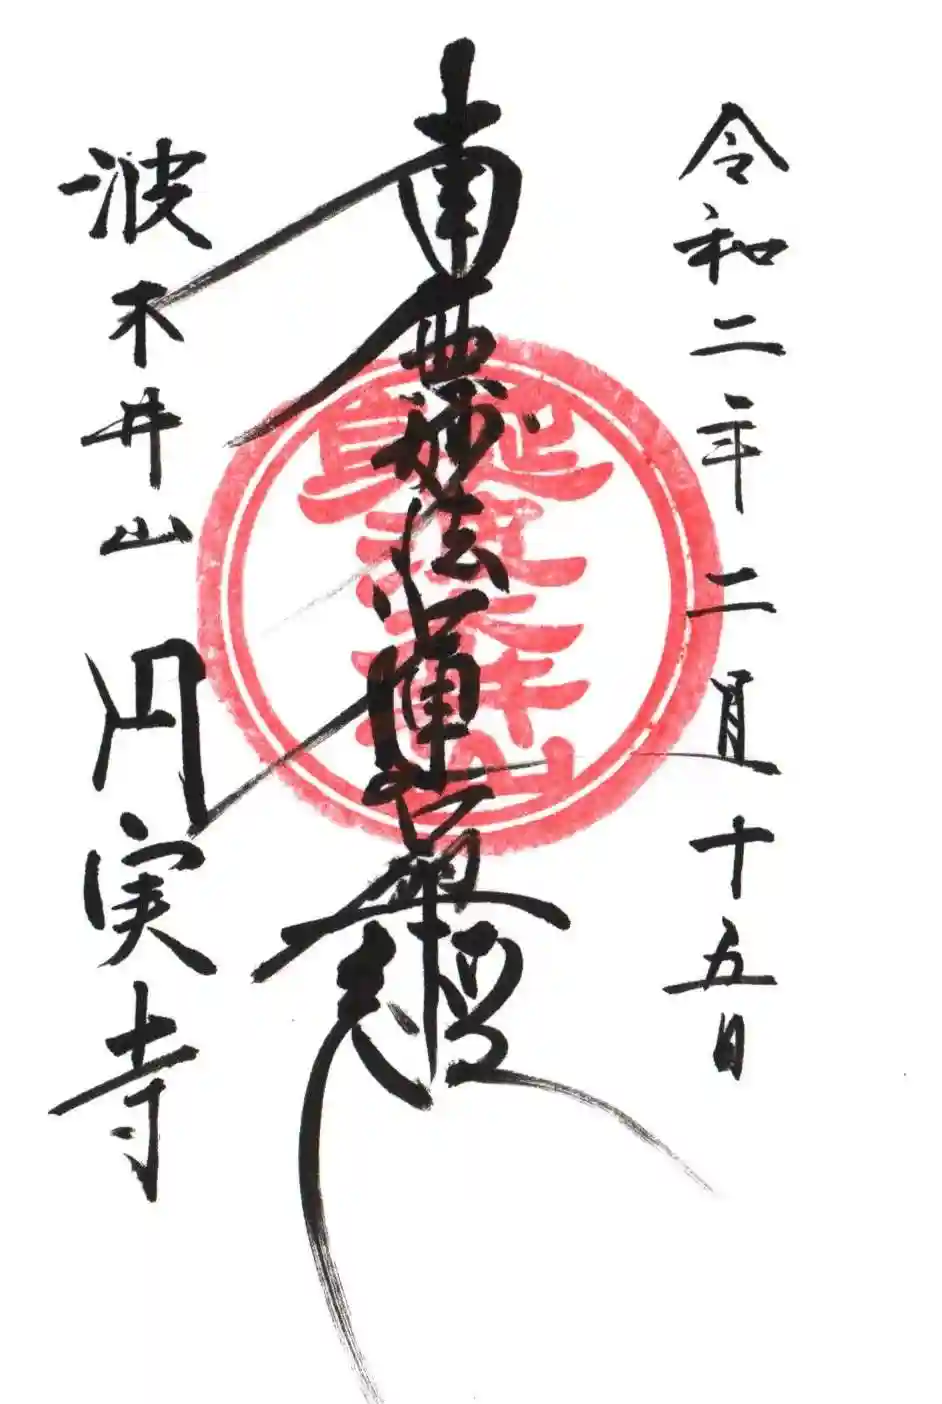 令和二年二月十五日
南無妙法蓮華経
波木井山 円実寺